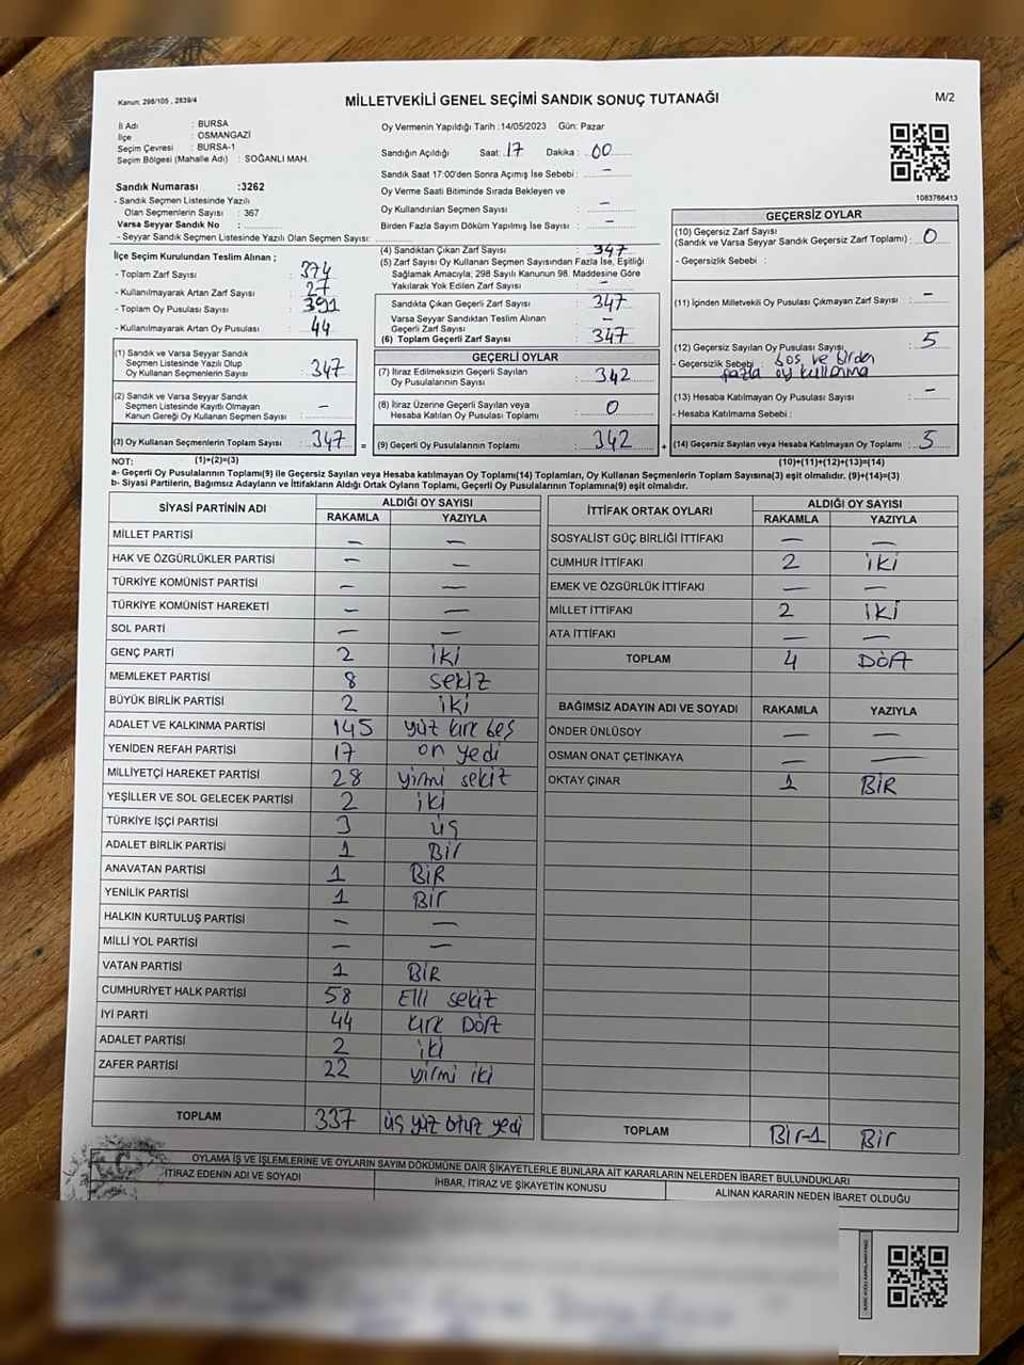 Kanun: 298/105 , 2839/4
MİLLETVEKİLİ GENEL SEÇİMİ SANDIK SONUÇ TUTANAĞI
M/2
İl Adı : BURSA
İlçe : OSMANGAZİ
Seçim Çevresi : BURSA-1
Seçim Bölgesi (Mahalle Adı) : SOĞANLI MAH.
Sandık Numarası :3262
- Sandık Seçmen Listesinde Yazılı
Olan Seçmenlerin Sayısı : 367
Varsa Seyyar Sandık No :
- Seyyar Sandık Seçmen Listesinde Yazılı Olan Seçmen Sayısı:
Oy Vermenin Yapıldığı Tarih :14/05/2023 Gün: Pazar
Sandığın Açıldığı Saat: 17 Dakika : 00
Sandık Saat 17:00'den Sonra Açımış İse Sebebi : -
Oy Verme Saati Bitiminde Sırada Bekleyen ve
Oy Kullandırılan Seçmen Sayısı : -
Birden Fazla Sayım Döküm Yapılmış İse Sayısı : -
1083766413
İlçe Seçim Kurulundan Teslim Alınan ;
- Toplam Zarf Sayısı : 374
- Kullanılmayarak Artan Zarf Sayısı : 27
- Toplam Oy Pusulası Sayısı : 391
- Kullanılmayarak Artan Oy Pusulası : 44
(1) Sandık ve Varsa Seyyar Sandık
Seçmen Listesinde Yazılı Olup
Oy Kullanan Seçmenlerin Sayısı : 347
(2) Sandık ve Varsa Seyyar Sandık
Seçmen Listesinde Kayıtlı Olmayan
Kanun Gereği Oy Kullanan Seçmen Sayısı : -
(3) Oy Kullanan Seçmenlerin Toplam Sayısı : 347 =
(4) Sandıktan Çıkan Zarf Sayısı : 347
(5) Zarf Sayısı Oy Kullanan Seçmen Sayısından Fazla İse, Eşitliği
Sağlamak Amacıyla; 298 Sayılı Kanunun 98. Maddesine Göre
Yakılarak Yok Edilen Zarf Sayısı : -
Sandıkta Çıkan Geçerli Zarf Sayısı : 347
Varsa Seyyar Sandıktan Teslim Alınan
Geçerli Zarf Sayısı : -
(6) Toplam Geçerli Zarf Sayısı : 347
GEÇERLİ OYLAR
(7) İtiraz Edilmeksizin Geçerli Sayılan
Oy Pusulalarının Sayısı : 342
(8) İtiraz Üzerine Geçerli Sayılan veya
Hesaba Katılan Oy Pusulası Toplamı : 0
(9) Geçerli Oy Pusulalarının Toplamı : 342 +
GEÇERSİZ OYLAR
(10) Geçersiz Zarf Sayısı
(Sandık ve Varsa Seyyar Sandık Geçersiz Zarf Toplamı) : 0
- Geçersizlik Sebebi :
(11) İçinden Milletvekili Oy Pusulası Çıkmayan Zarf Sayısı : -
(12) Geçersiz Sayılan Oy Pusulası Sayısı : 5
- Geçersizlik Sebebi : boş ve birden
fazla oy kullanma
(13) Hesaba Katılmayan Oy Pusulası Sayısı : -
- Hesaba Katılmama Sebebi :
(14) Geçersiz Sayılan veya Hesaba Katılmayan Oy Toplamı : 5
NOT: (1)+(2)=(3) (10)+(11)+(12)+(13)=(14)
a- Geçerli Oy Pusulalarının Toplamı(9) ile Geçersiz Sayılan veya Hesaba katılmayan Oy Toplamı(14) Toplamları, Oy Kullanan Seçmenlerin Toplam Sayısına(3) eşit olmalıdır. (9)+(14)=(3)
b- Siyasi Partilerin, Bağımsız Adayların ve İttifakların Aldığı Ortak Oyların Toplamı, Geçerli Oy Pusulalarının Toplamına(9) eşit olmalıdır.
SİYASİ PARTİNİN ADI ALDIĞI OY SAYISI
RAKAMLA YAZIYLA
MİLLET PARTİSİ - -
HAK VE ÖZGÜRLÜKLER PARTİSİ - -
TÜRKİYE KOMÜNİST PARTİSİ - -
TÜRKİYE KOMÜNİST HAREKETİ - -
SOL PARTİ - -
GENÇ PARTİ 2 iki
MEMLEKET PARTİSİ 8 sekiz
BÜYÜK BİRLİK PARTİSİ 2 iki
ADALET VE KALKINMA PARTİSİ 145 yüz kırk beş
YENİDEN REFAH PARTİSİ 17 on yedi
MİLLİYETÇİ HAREKET PARTİSİ 28 yirmi sekiz
YEŞİLLER VE SOL GELECEK PARTİSİ 2 iki
TÜRKİYE İŞÇİ PARTİSİ 3 üş
ADALET BİRLİK PARTİSİ 1 Bir
ANAVATAN PARTİSİ 1 BİR
YENİLİK PARTİSİ 1 Bir
HALKIN KURTULUŞ PARTİSİ - -
MİLLİ YOL PARTİSİ - -
VATAN PARTİSİ 1 BİR
CUMHURİYET HALK PARTİSİ 58 Elli sekiz
İYİ PARTİ 44 kırk Dört
ADALET PARTİSİ 2 iki
ZAFER PARTİSİ 22 yirmi iki
TOPLAM 337 üş yüz otuz yedi
İTTİFAK ORTAK OYLARI ALDIĞI OY SAYISI
RAKAMLA YAZIYLA
SOSYALİST GÜÇ BİRLİĞİ İTTİFAKI - -
CUMHUR İTTİFAKI 2 iki
EMEK VE ÖZGÜRLÜK İTTİFAKI - -
MİLLET İTTİFAKI 2 iki
ATA İTTİFAKI - -
TOPLAM 4 Dört
BAĞIMSIZ ADAYIN ADI VE SOYADI RAKAMLA YAZIYLA
ÖNDER ÜNLÜSOY - -
OSMAN ONAT ÇETİNKAYA - -
OKTAY ÇINAR 1 BİR
TOPLAM Bir-1 Bir
OYLAMA İŞ VE İŞLEMLERİNE VE OYLARIN SAYIM DÖKÜMÜNE DAİR ŞİKAYETLERLE BUNLARA AİT KARARLARIN NELERDEN İBARET BULUNDUKLARI
İTİRAZ EDENİN ADI VE SOYADI İHBAR, İTİRAZ VE ŞİKAYETİN KONUSU ALINAN KARARIN NEDEN İBARET OLDUĞU